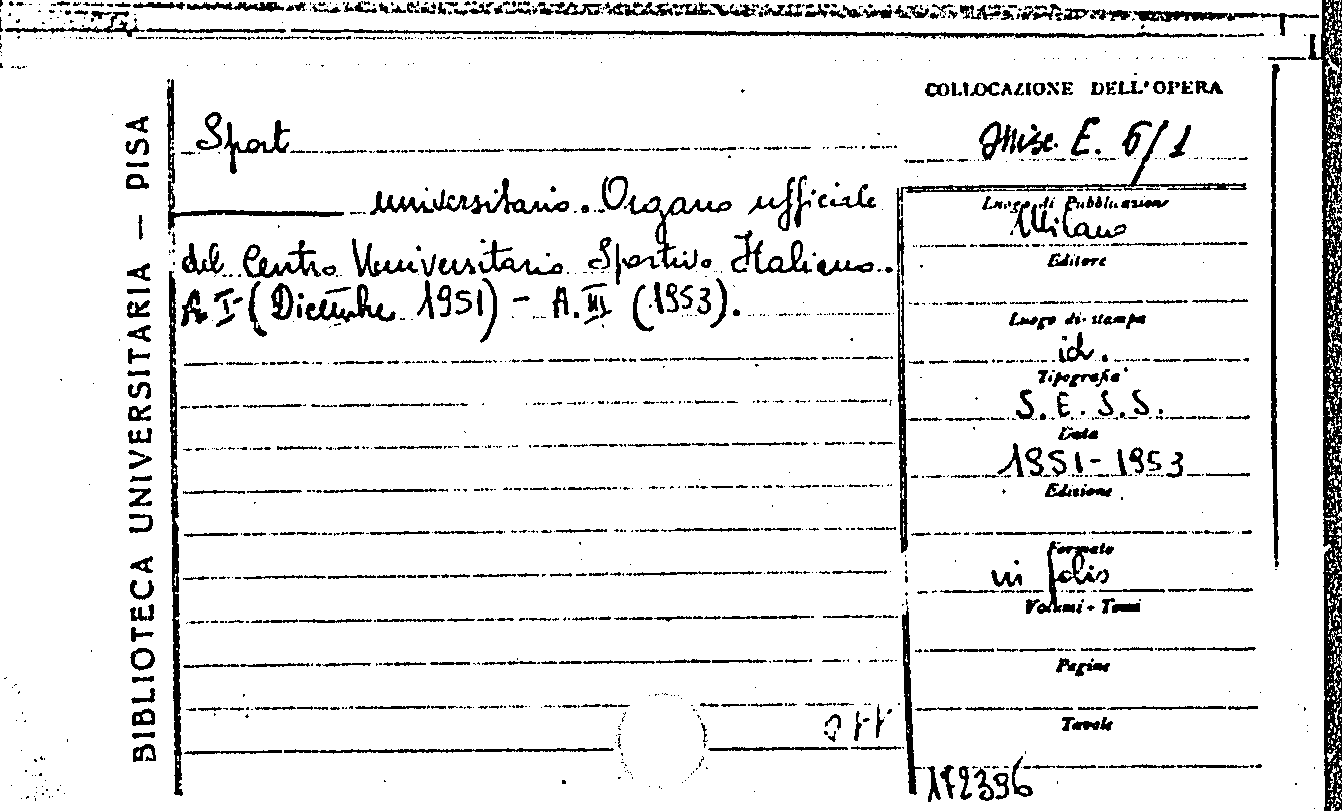 BIBLIOTECA UNIVERSITARIA — PISA
COLLOCAZIONE DELL'OPERA
Misc. E. 6/1
Sport
universitario. Organo ufficiale
del Centro Universitario Sportivo Italiano.
A. I (Dicembre 1951) - A. III (1953).
Luogo di Pubblicazione
Milano
Editore
Luogo di stampa
id.
Tipografia
S.E.S.S.
Data
1951-1953
Edizione
Formato
in folio
Volumi - Tomi
Pagine
Tavole
172396